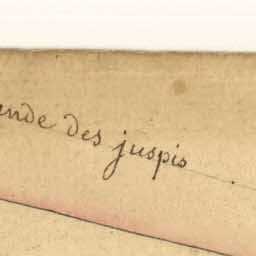 ande des juspis